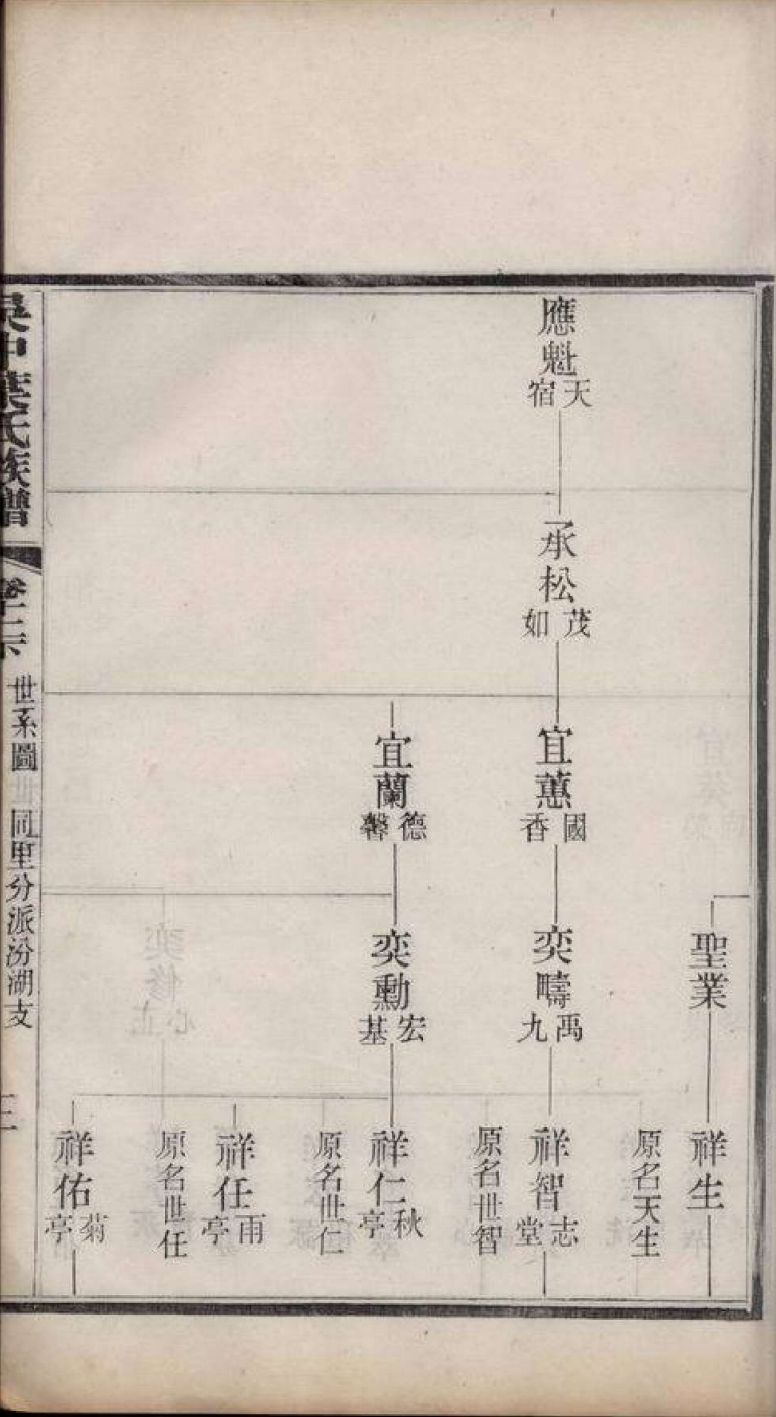 應魁
天宿
承松
茂如
宜蕙
國香
宜蘭
德馨
聖業
奕疇
禹九
奕勳
宏基
祥生
原名天生
祥智
志堂
原名世智
祥仁
秋亭
原名世仁
祥任
雨亭
原名世任
祥佑
菊亭
吳中葉氏族譜
世系圖
同里分派汾湖支